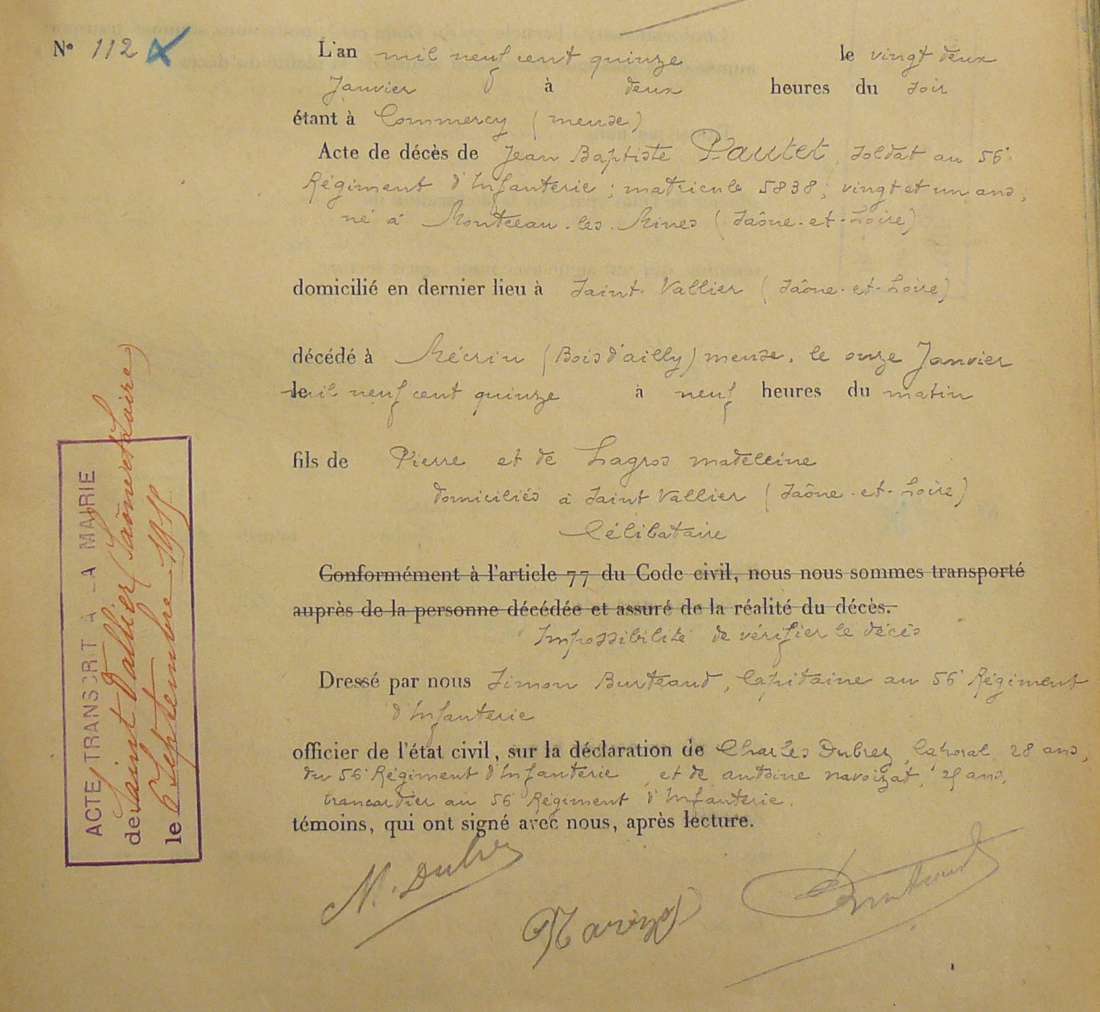 N° 112
L'an mil neuf cent quinze le vingt deux
Janvier à deux heures du soir
étant à Commercy (meuse)
Acte de décès de Jean Baptiste Pautet, soldat au 56e
Régiment d'Infanterie ; matricule 5838 ; vingt et un ans ;
né à Montceau-les-Mines (Saône-et-Loire)
domicilié en dernier lieu à Saint-Vallier (Saône-et-Loire)
décédé à Mécrin (Bois d'ailly) meuse, le onze Janvier
le mil neuf cent quinze à neuf heures du matin
fils de Pierre et de Lagros madeleine
domiciliés à Saint Vallier (Saône-et-Loire)
Célibataire
Conformément à l'article 77 du Code civil, nous nous sommes transporté
auprès de la personne décédée et assuré de la réalité du décès.
Impossibilité de vérifier le décès
Dressé par nous Simon Burtraud, Capitaine au 56e Régiment
d'Infanterie
officier de l'état civil, sur la déclaration de Charles Dubrez, Caporal, 28 ans,
du 56e Régiment d'Infanterie et de antoine navoizat, 25 ans,
brancardier au 56e Régiment d'Infanterie.
témoins, qui ont signé avec nous, après lecture.
ACTE TRANSCRIT A LA MAIRIE
de Saint Vallier (Saône et Loire)
le 6 Septembre 1915